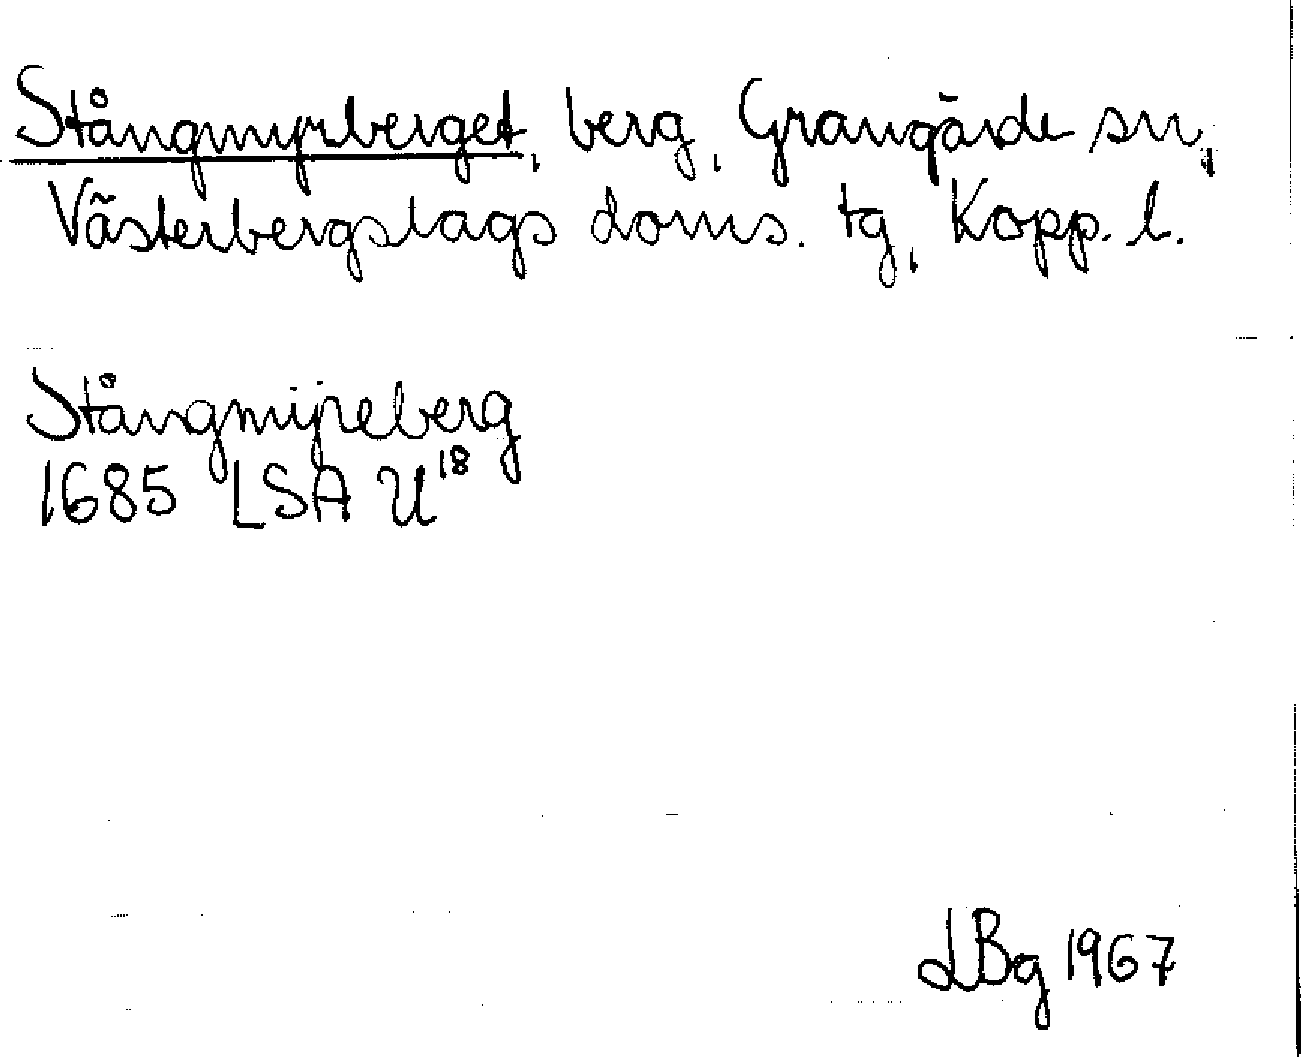 Stångmyrberget, berg, Grangärde sn,
Västerbergslags doms. tg, Kopp. l.
Stångmÿreberg
1685 LSA U¹⁸
LBg 1967